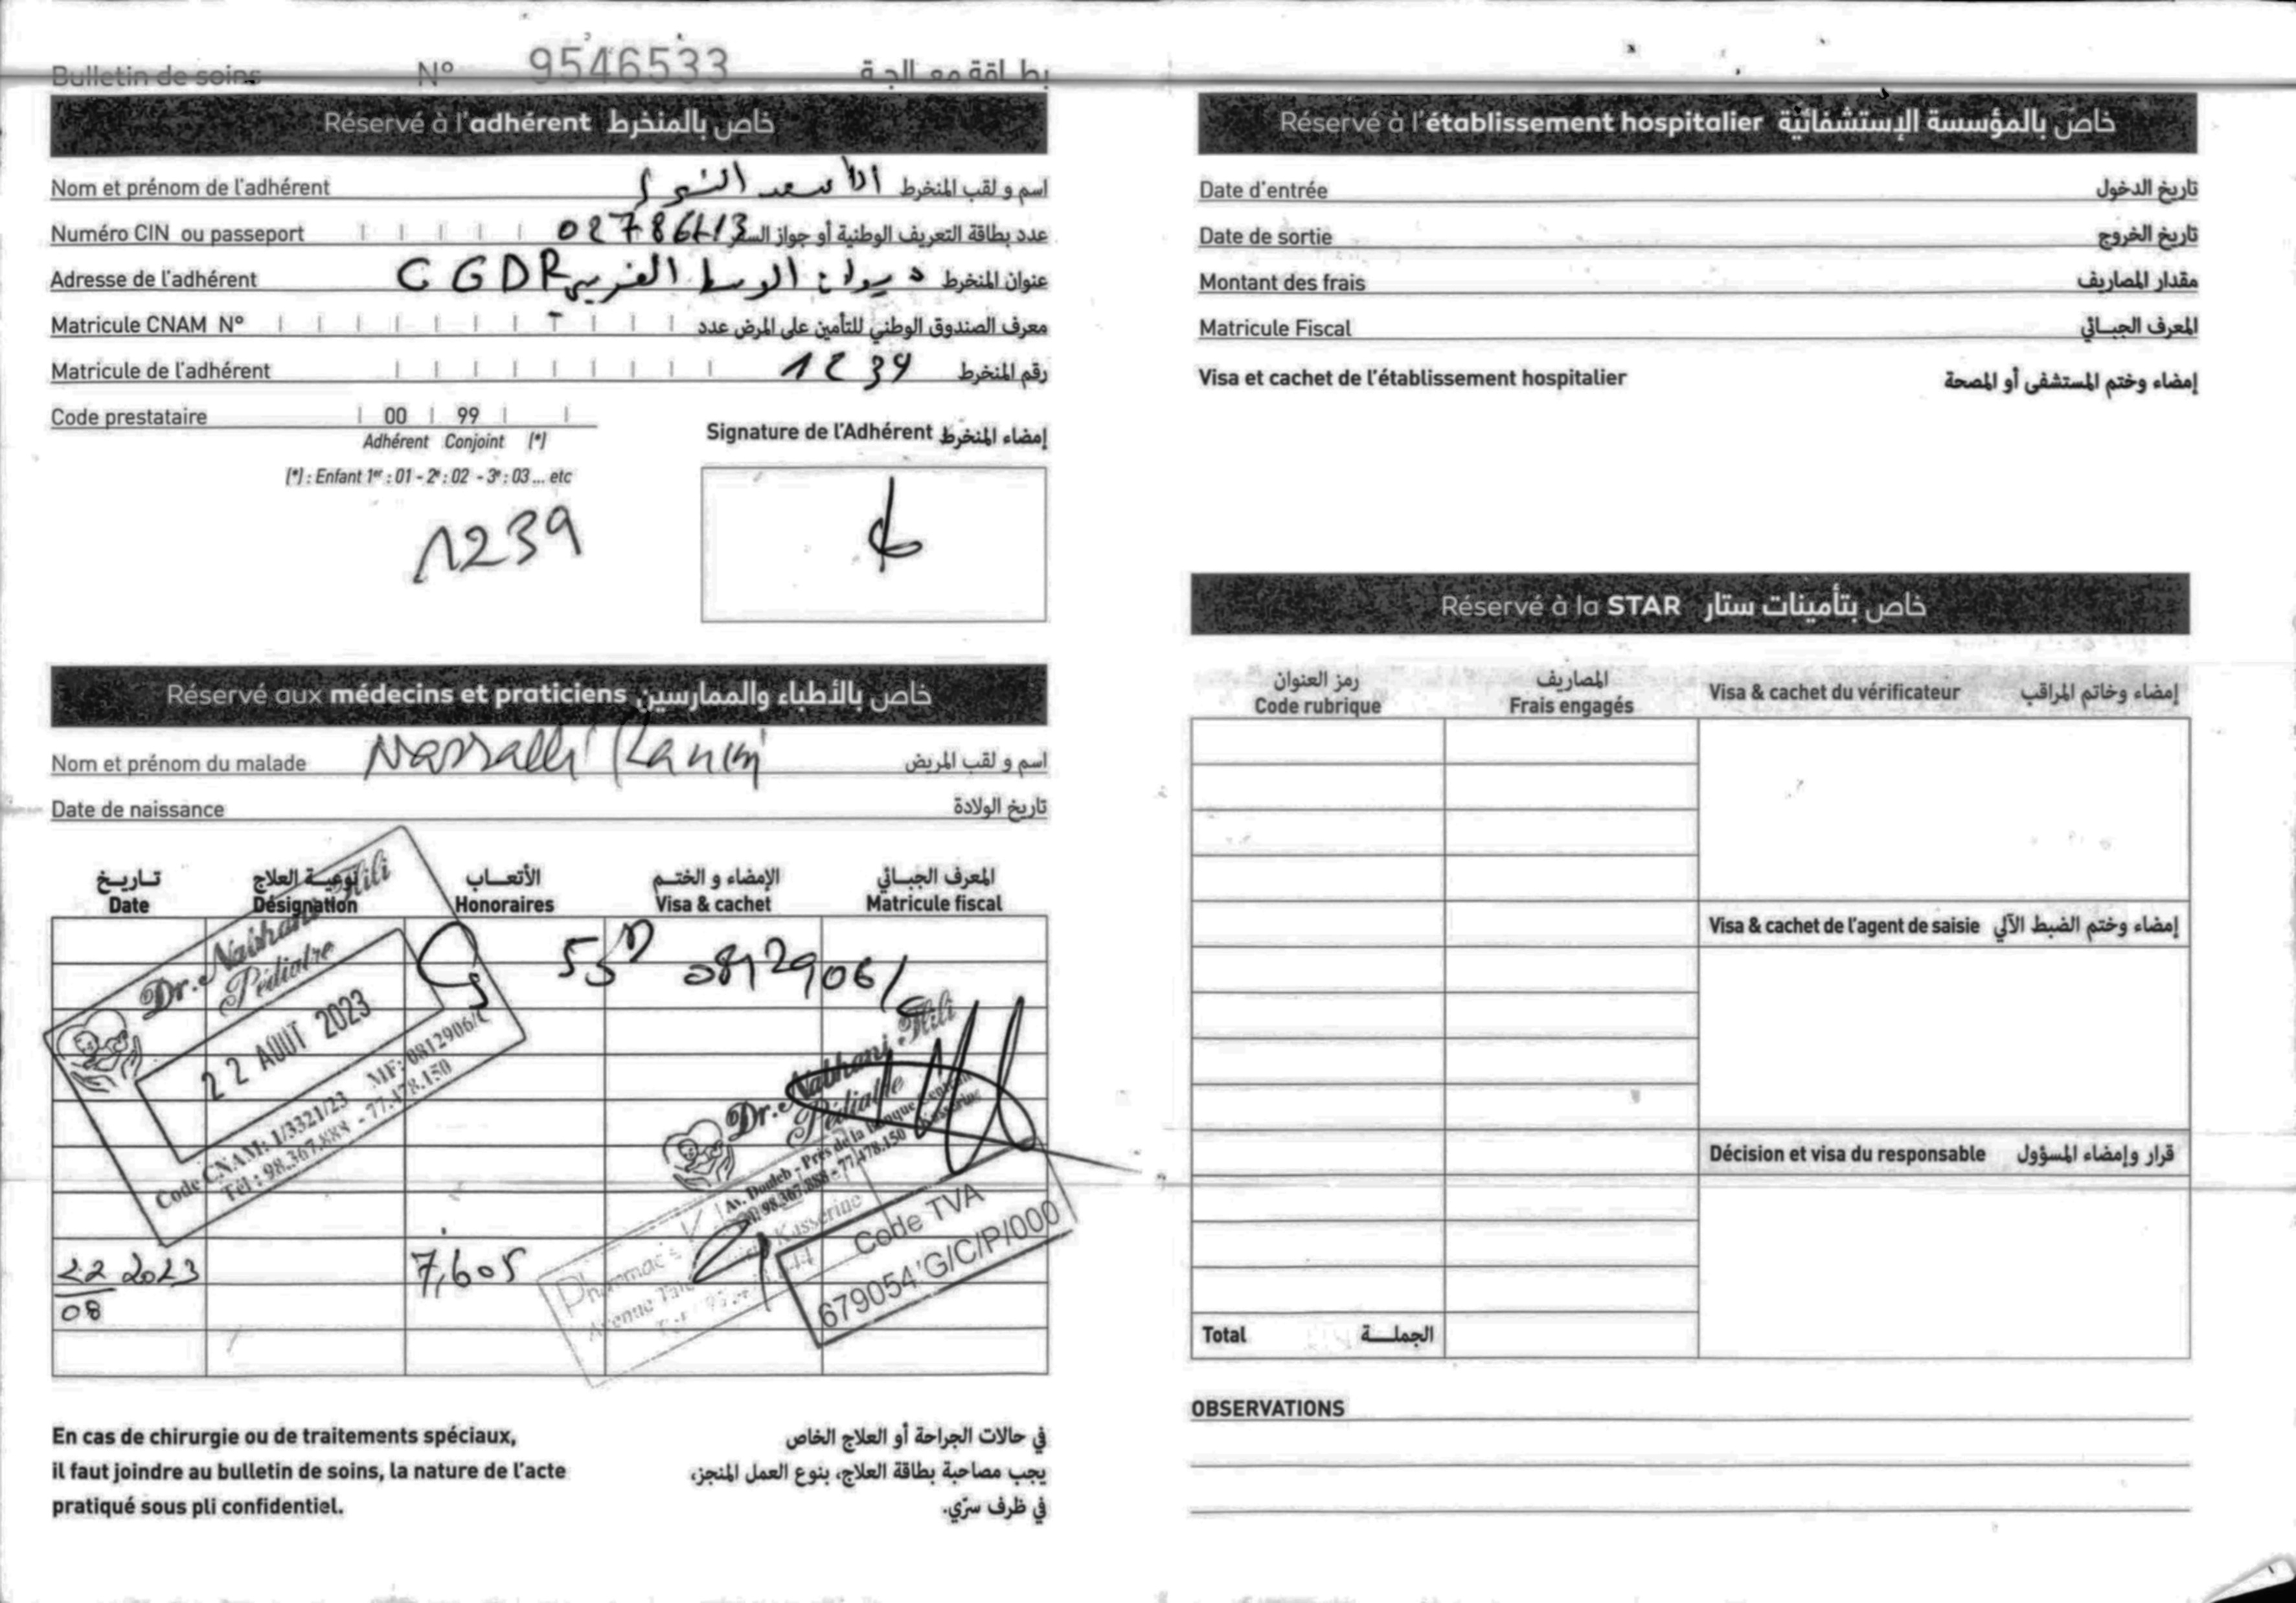 Bulletin de soins N° 9546533 بطاقة معالجة
Réservé à l'adhérent خاص بالمنخرط
Nom et prénom de l'adhérent الأسعد اسم و لقب المنخرط
Numéro CIN ou passeport عدد بطاقة التعريف الوطنية أو جواز السفر
Adresse de l'adhérent CGDR ديوان الوسط الغربي عنوان المنخرط
Matricule CNAM N° معرف الصندوق الوطني للتأمين على المرض عدد
Matricule de l'adhérent 1239 رقم المنخرط
Code prestataire 00 99
Adhérent Conjoint (*)
(*) : Enfant 1er : 01 - 2e : 02 - 3e : 03 ... etc
1239
Signature de l'Adhérent إمضاء المنخرط
Réservé aux médecins et praticiens خاص بالأطباء والممارسين
Nom et prénom du malade اسم و لقب المريض
Date de naissance تاريخ الولادة
تـاريـخ نوعيـة العلاج الأتعـاب الإمضاء و الختـم المعرف الجبـائي
Date Désignation Honoraires Visa & cachet Matricule fiscal
Dr. Nabhani Hili
Pédiatre
22 AOUT 2023
Code CNAM: 1/3321/23 MF: 0812906/C
Tél : 98.367.888 - 77.478.150
Dr. Nabhani Hili
Pédiatre
Av. Douleb - Près de la Banque Centrale
Tél: 98.367.888 - 77.478.150 Kasserine
22 2023
08
7,605
Kasserine
Code TVA
679054'G/C/P/000
En cas de chirurgie ou de traitements spéciaux,
il faut joindre au bulletin de soins, la nature de l'acte
pratiqué sous pli confidentiel.
في حالات الجراحة أو العلاج الخاص
يجب مصاحبة بطاقة العلاج، بنوع العمل المنجز،
في ظرف سرّي.
Réservé à l'établissement hospitalier خاصّ بالمؤسسة الإستشفائيّة
Date d'entrée تاريخ الدخول
Date de sortie تاريخ الخروج
Montant des frais مقدار المصاريف
Matricule Fiscal المعرف الجبـائي
Visa et cachet de l'établissement hospitalier إمضاء وختم المستشفى أو المصحة
Réservé à la STAR خاص بتأمينات ستار
رمز العنوان المصاريف
Code rubrique Frais engagés Visa & cachet du vérificateur إمضاء وخاتم المراقب
Visa & cachet de l'agent de saisie إمضاء وختم الضبط الآلي
Décision et visa du responsable قرار وإمضاء المسؤول
Total الجملـــة
OBSERVATIONS